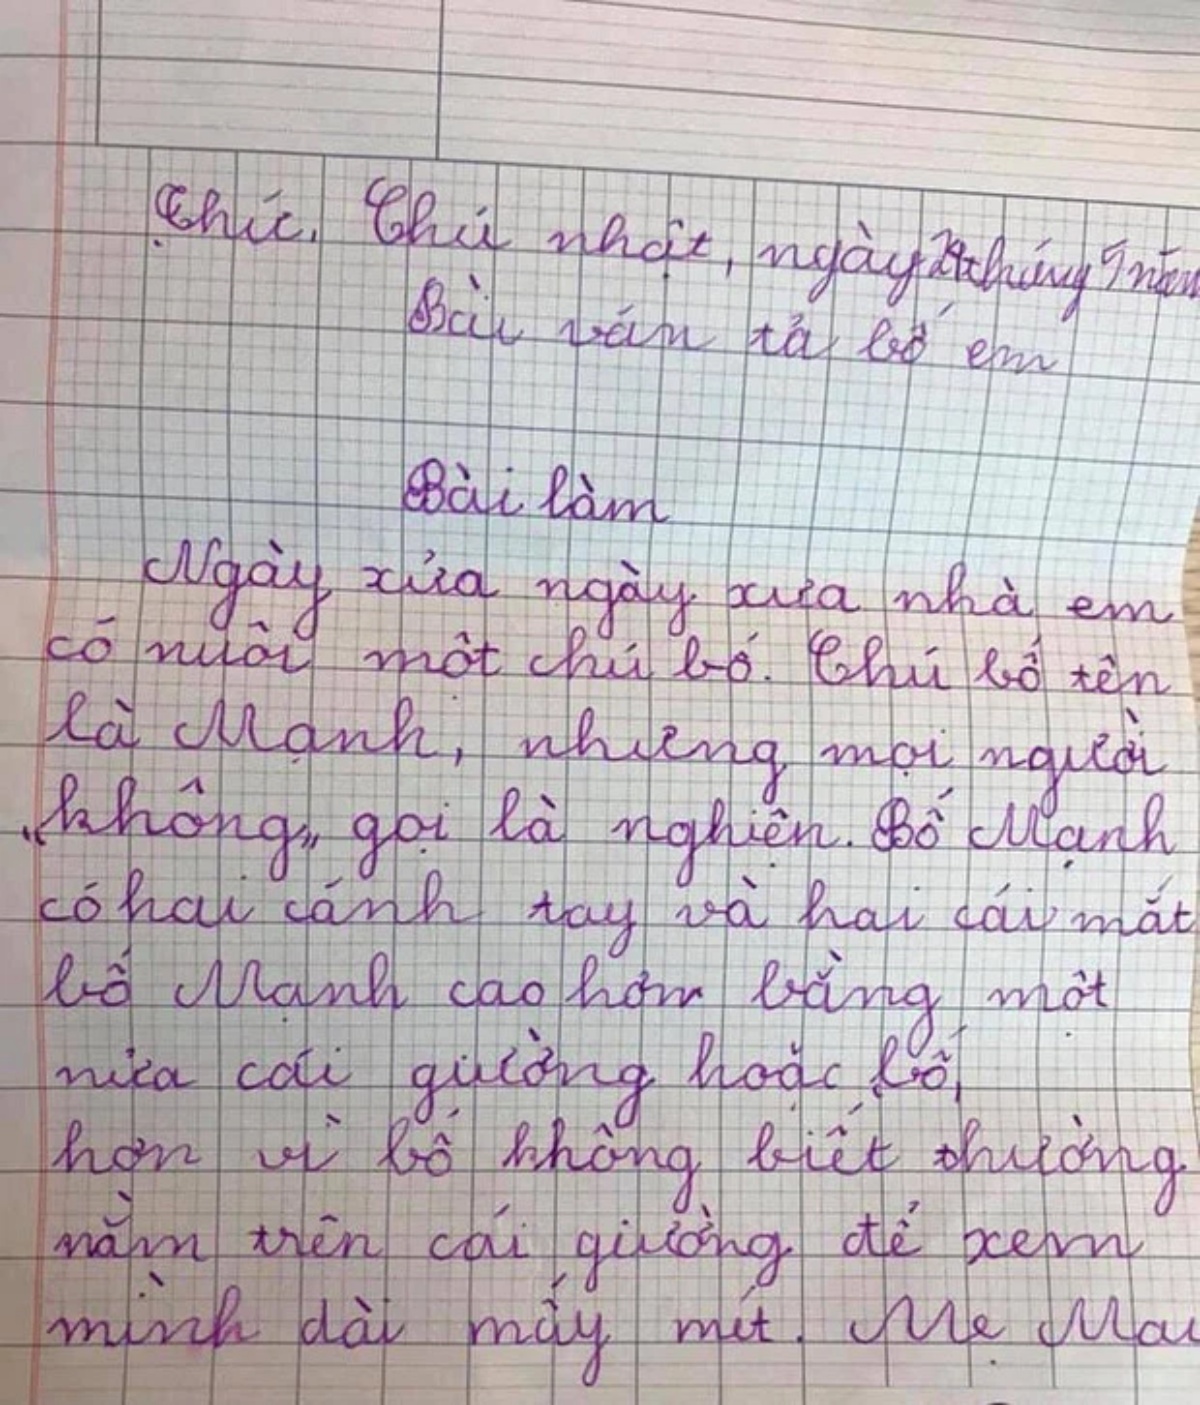 Thíc. Chủ nhật, ngày tháng 5 năm
Bài văn tả bố em
Bài làm
Ngày xửa ngày xưa nhà em
có nuôi một chú bố. Chú bố tên
là Mạnh, nhưng mọi người
"không" gọi là nghiện. Bố Mạnh
có hai cánh tay và hai cái mắt
bố Mạnh cao hơn bằng một
nửa cái giường hoặc bố,
hơn vì bố không biết thường
nằm trên cái giường để xem
mình dài mấy mét. Mẹ Mai